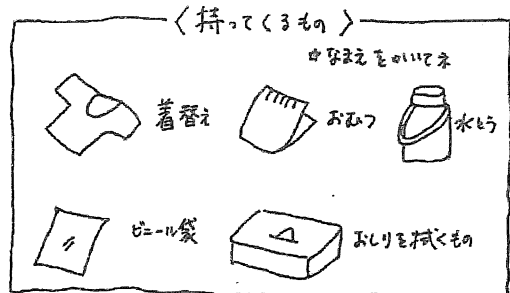 〈持ってくるもの〉
☆なまえをかいてネ
着替え
おむつ
水とう
ビニール袋
おしりを拭くもの